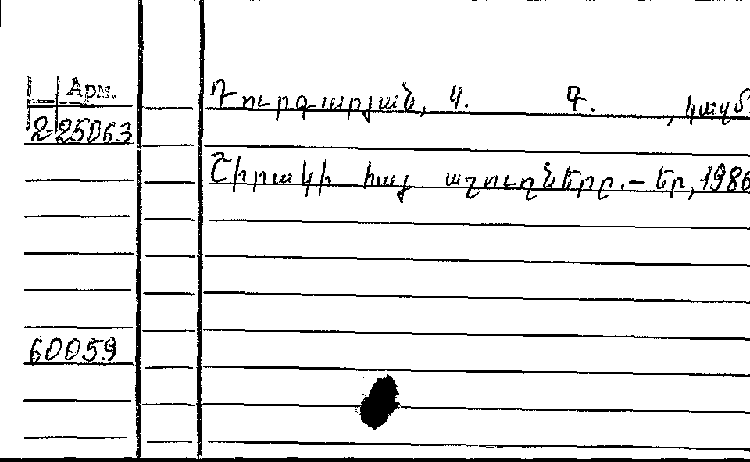 Арм.
Դուրգարյան, Կ. Գ. , կազմ.
2-25063
Շիրակի հայ աշուղները.– Եր, 1986
60059